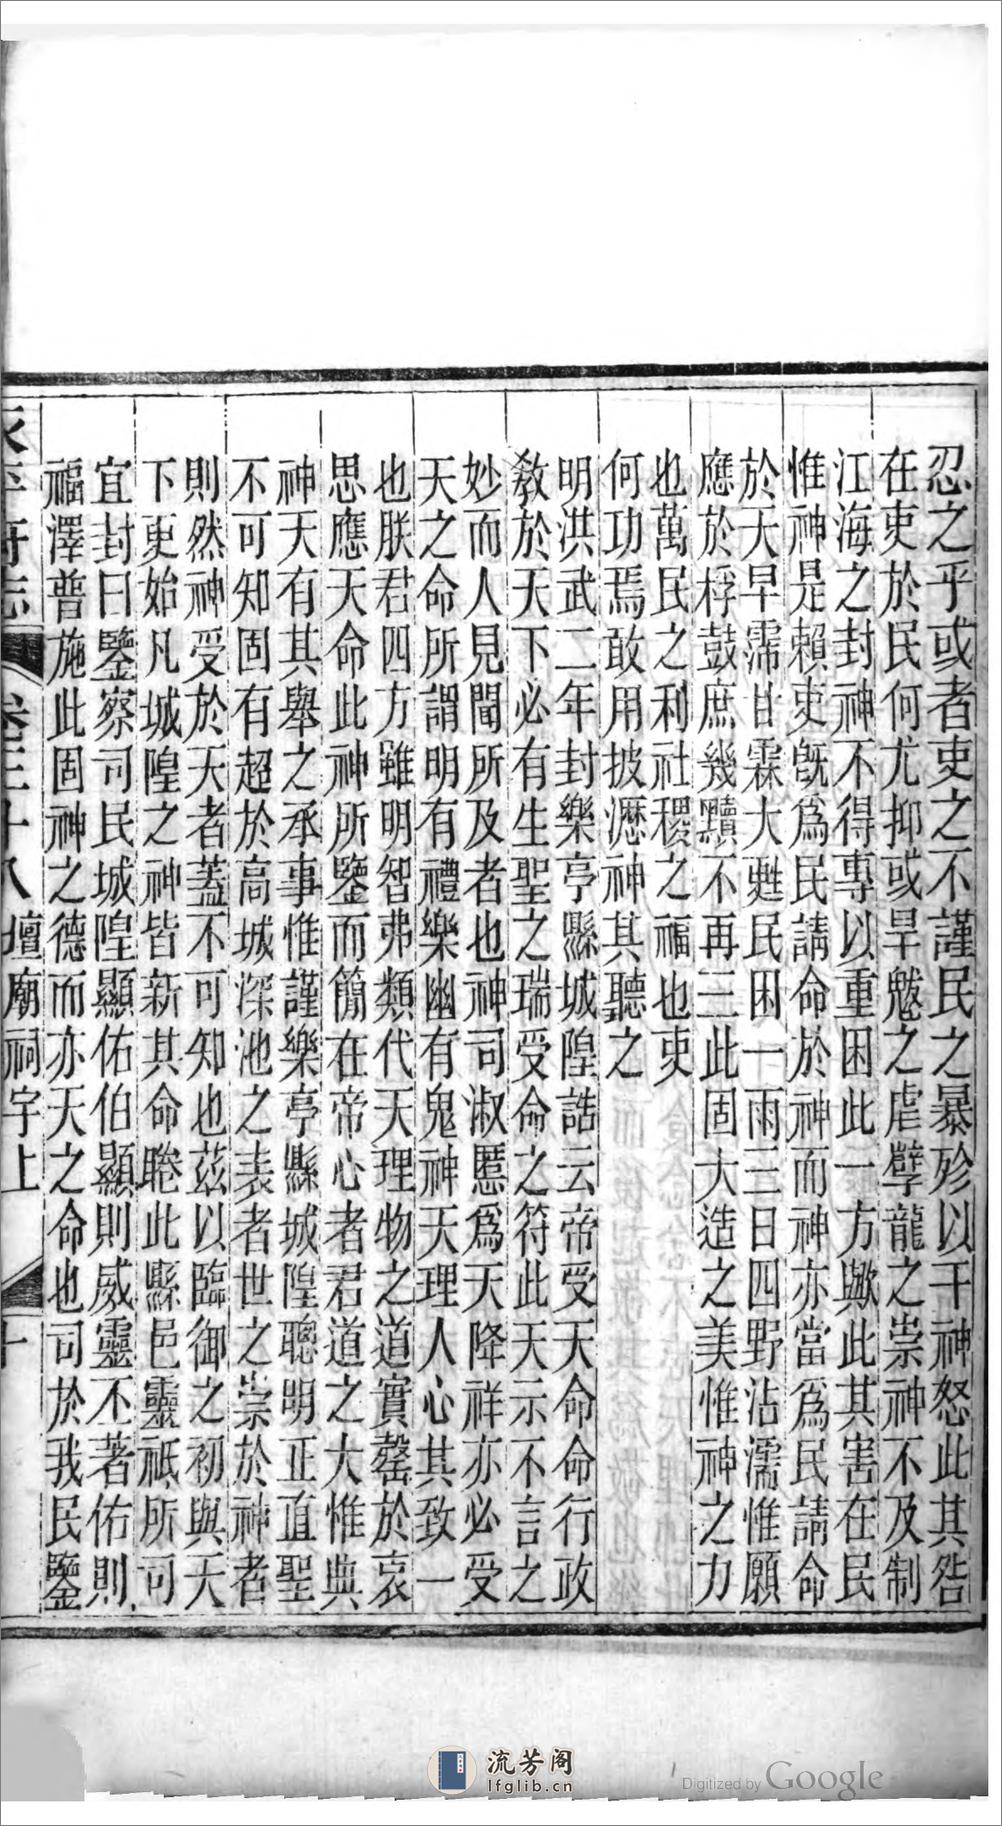 忍之乎或者吏之不謹民之暴殄以干神怒此其咎
在吏於民何尤抑或旱魃之虐孽龍之祟神不及制
江海之封神不得專以重困此一方歟此其害在民
惟神是賴吏旣爲民請命於神而神亦當爲民請命
於天早霈甘霖大甦民困一雨三日四野沾濡惟願
應於桴鼓庶幾黷不再三此固大造之美惟神之力
也萬民之利社稷之福也吏
何功焉敢用披瀝神其聽之
明洪武二年封樂亭縣城隍誥云帝受天命命行政
敎於天下必有生聖之瑞受命之符此天示不言之
妙而人見聞所及者也神司淑慝爲天降祥亦必受
天之命所謂明有禮樂幽有鬼神天理人心其致一
也朕君四方雖明智弗類代天理物之道實罄於衷
思應天命此神所鑒而簡在帝心者君道之大惟典
神天有其舉之承事惟謹樂亭縣城隍聰明正直聖
不可知固有超於高城深池之表者世之崇於神者
則然神受於天者蓋不可知也茲以臨御之初與天
下更始凡城隍之神皆新其命睠此縣邑靈祇所司
宜封曰鑒察司民城隍顯佑伯顯則威靈丕著佑則
福澤普施此固神之德而亦天之命也司於我民鑒
永平府志 卷三十八 壇廟祠宇上 十
流芳阁
lfglib.cn
Digitized by Google